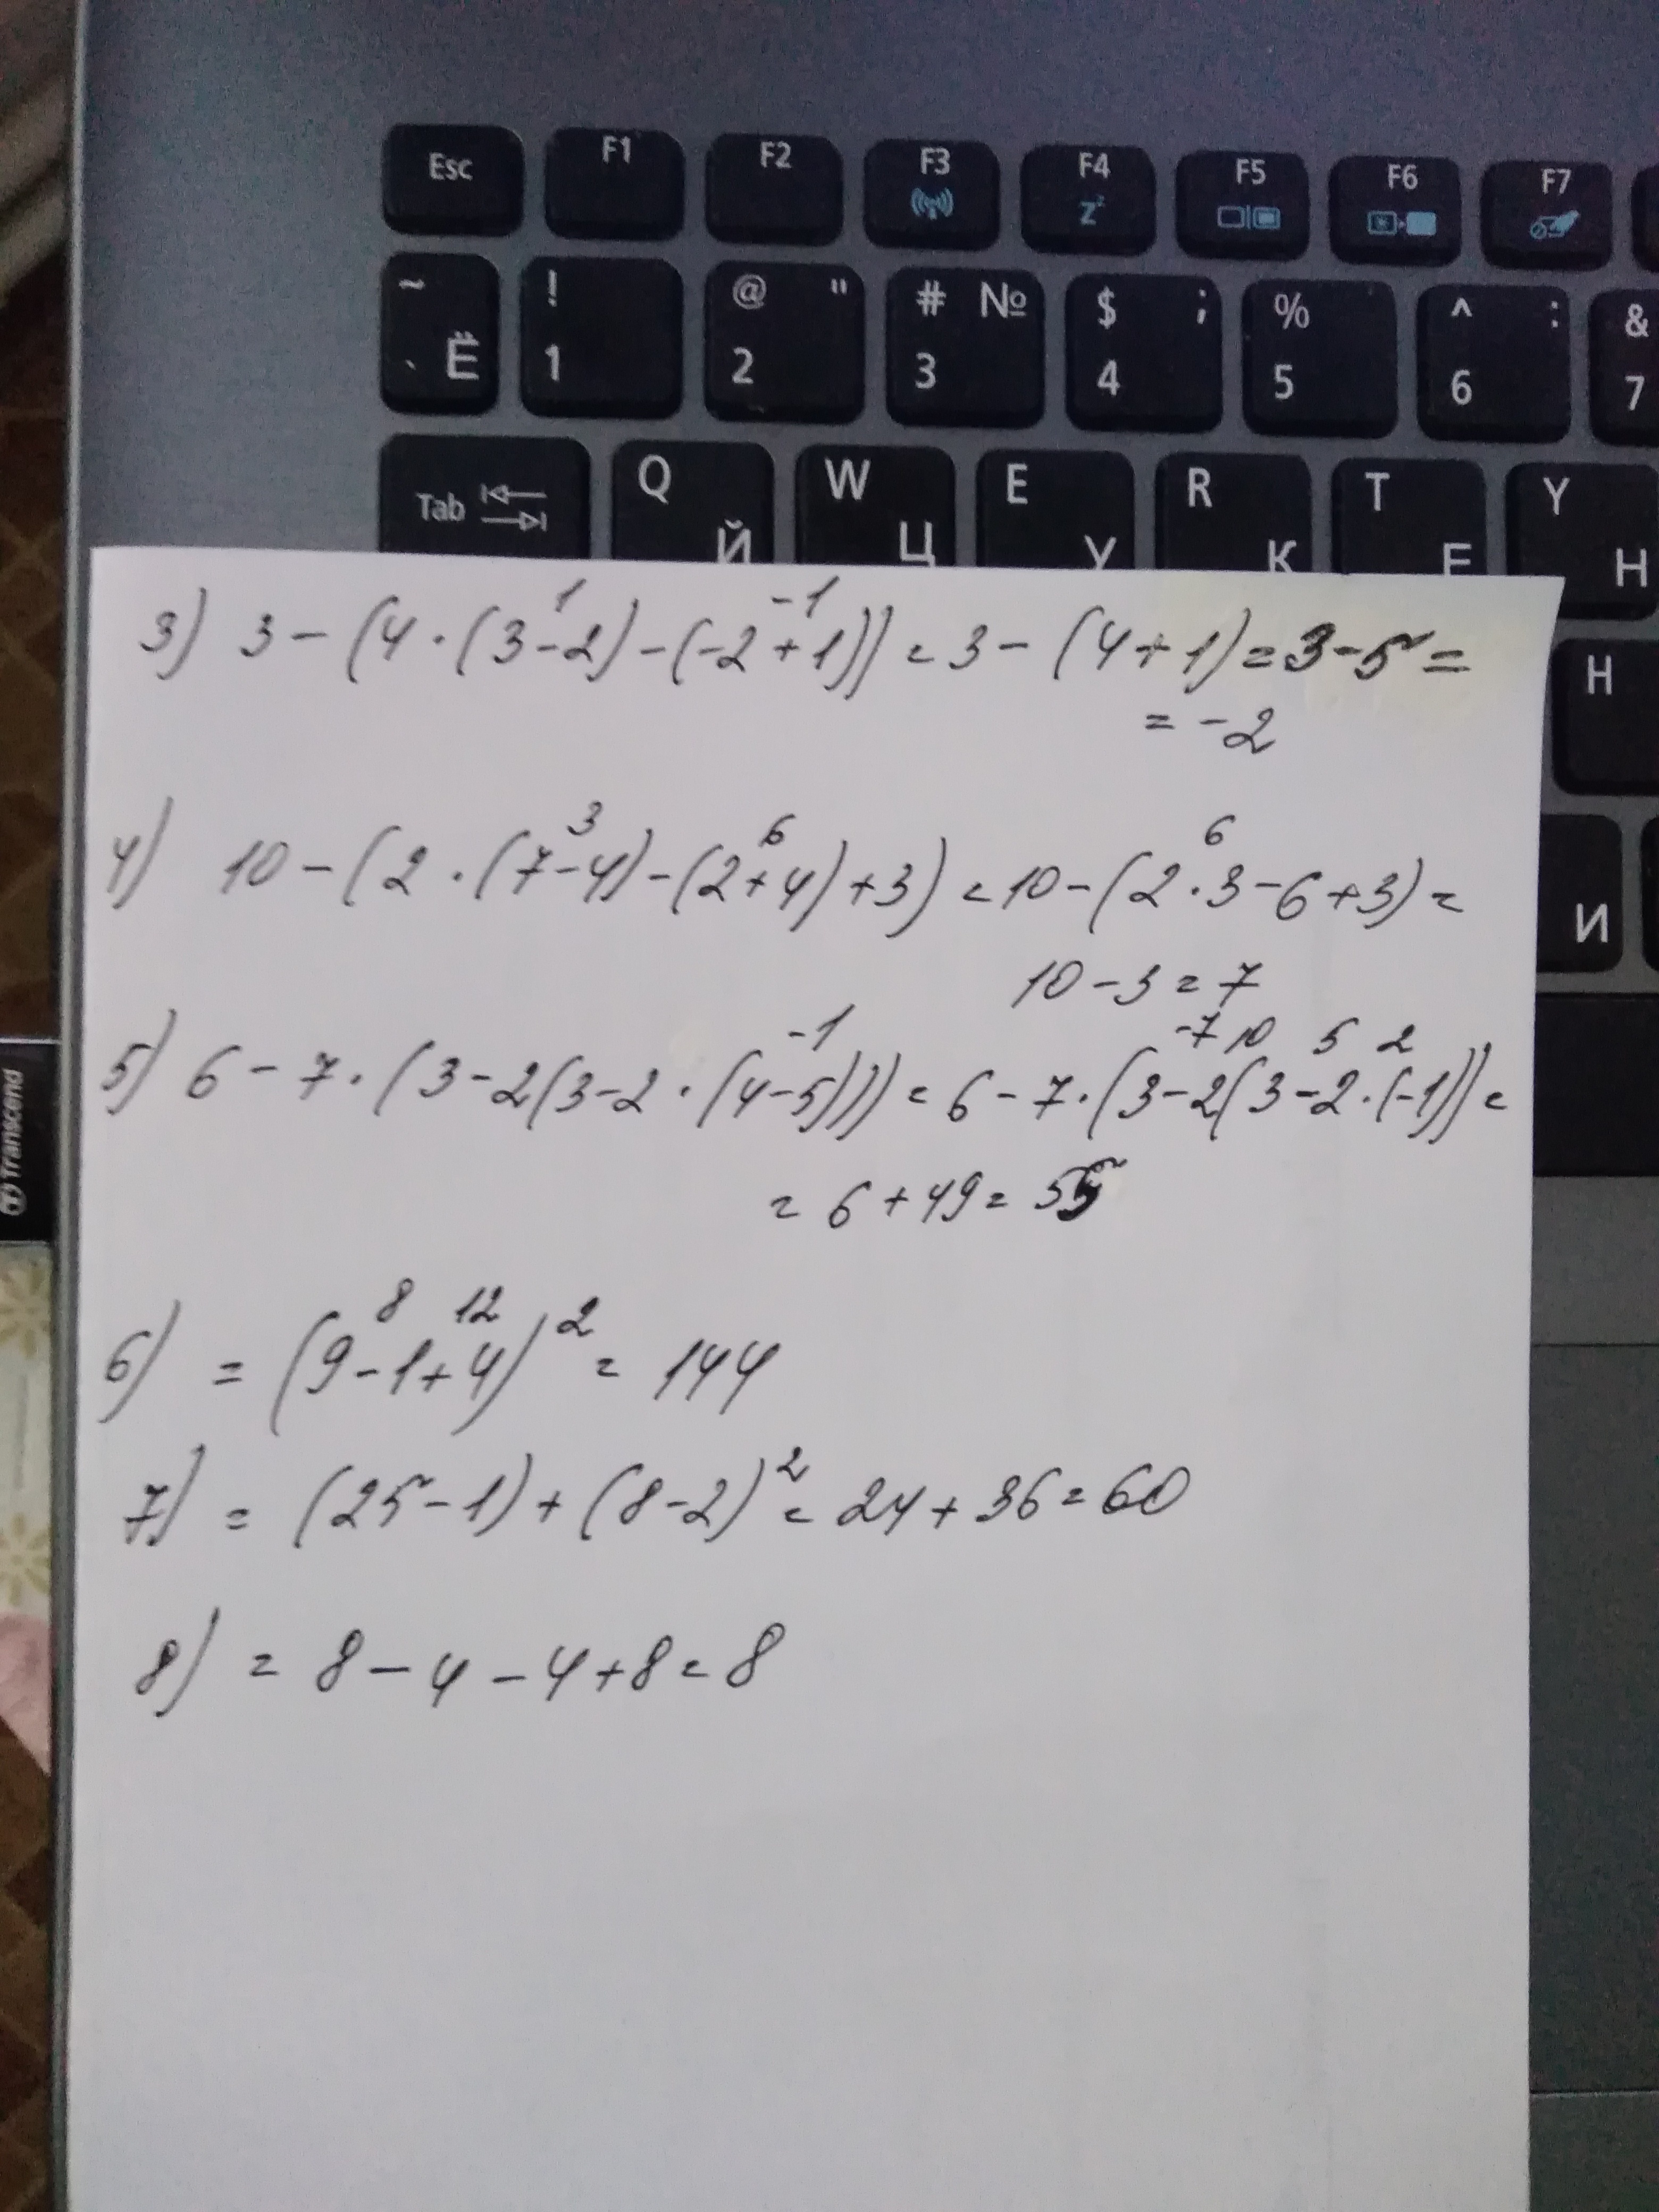 Esc F1 F2 F3 F4 F5 F6 F7
~ ` Ё ! 1 @ " 2 # № 3 $ ; 4 % 5 ^ : 6 & 7
Tab Q Й W Ц E У R К T Е Y Н
H
И
Transcend
1 -1
3) 3 - (4 · (3-2) - (-2+1)) = 3 - (4+1) = 3-5 =
= -2
3 6 6
4) 10 - (2 · (7-4) - (2+4) + 3) = 10 - (2·3 - 6 + 3) =
10 - 3 = 7
-1 -7 10 5 2
5) 6 - 7 · (3-2(3-2 · (4-5))) = 6 - 7·(3-2(3-2·(-1)) =
= 6 + 49 = 55
8 12
6) = (9-1+4)² = 144
7) = (25-1) + (8-2)² = 24 + 36 = 60
8) = 8 - 4 - 4 + 8 = 8